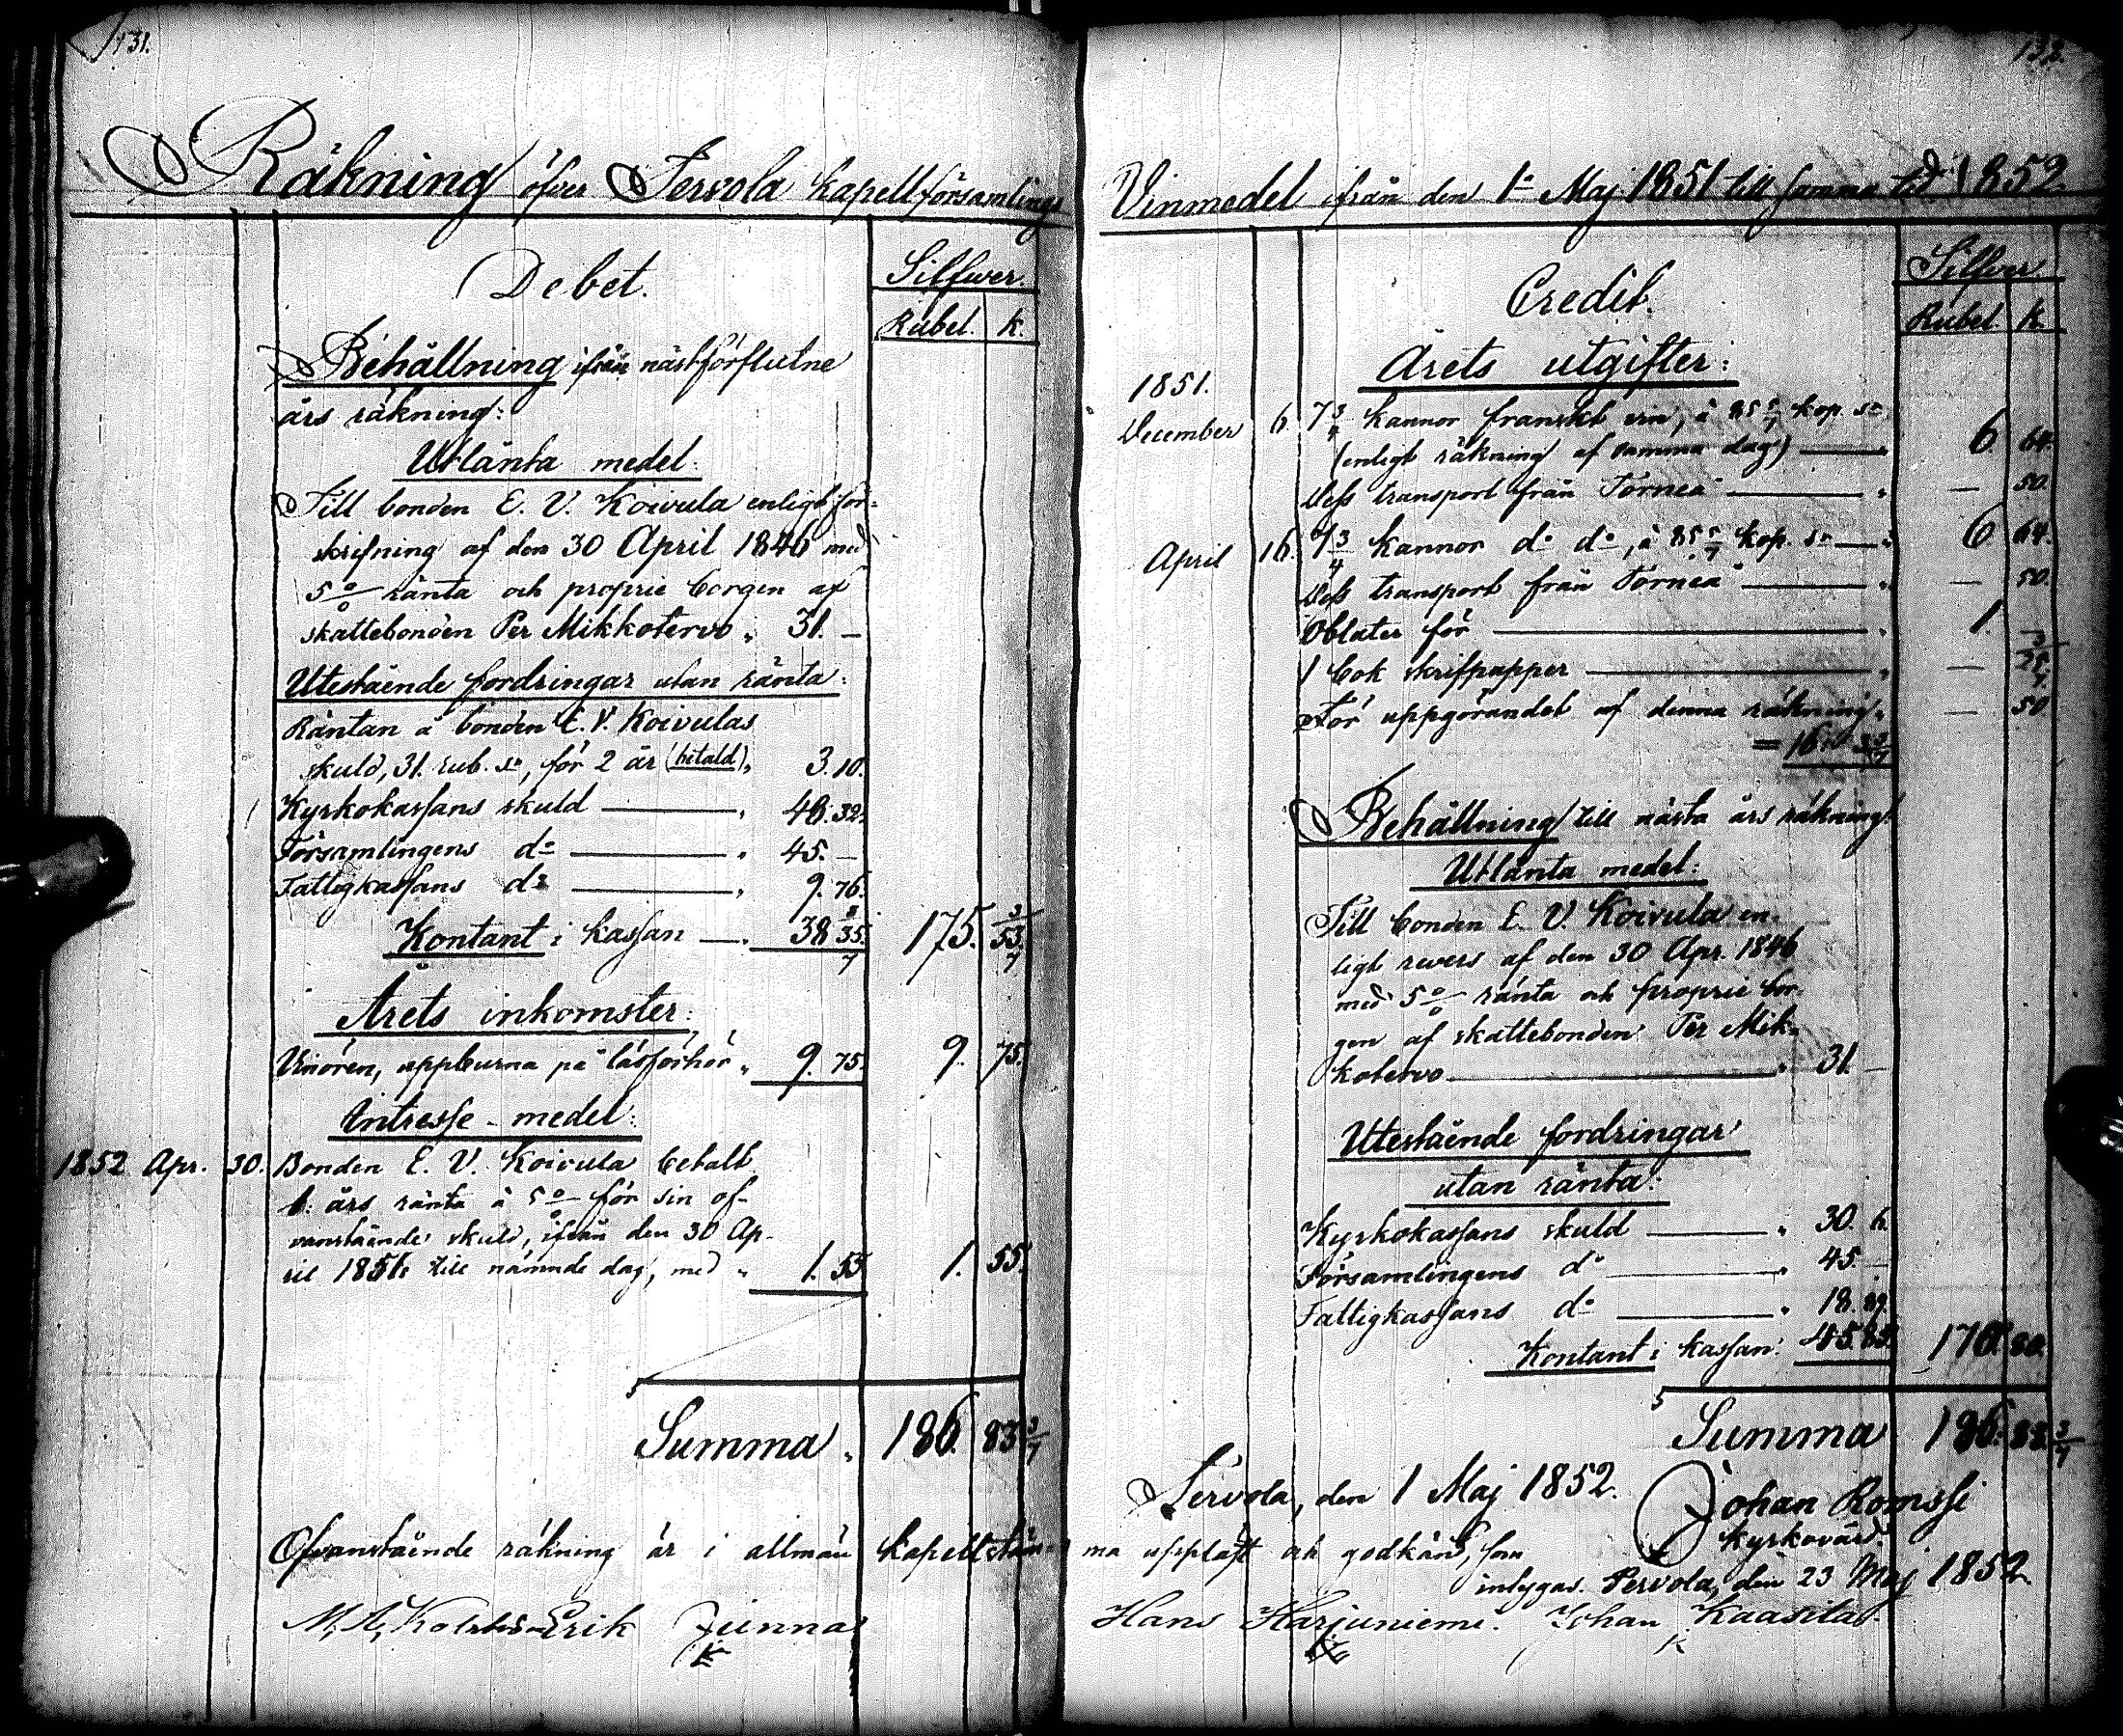 131.
Räkning öfver Tervola kapellförsamlings
Debet.
Silfwer.
Rubel. k.
Behållning ifrån nästförflutne
års räkning:
Utlånta medel:
Till bonden E. V. Koivula enligt för-
skrifning af den 30 April 1846 med
5 % ränta och proprie borgen af
skattebonden Per Mikkotervo „ 31. —
Utestående fordringar utan ränta:
Räntan å bonden E. V. Koivulas
skuld, 31. rub. sr, för 2 år (betald) „ 3. 10.
Kyrkokassans skuld — „ 48. 32.
Församlingens do — „ 45. —
Fattigkassans do — „ 9. 76.
Kontant i kassan — „ 38 35 3/7 175. 53 3/7
Årets inkomster:
Vinören, uppburna på läsförhör „ 9. 75. 9. 75.
Intresse-medel:
1852 Apr. 30. Bonden E. V. Koivula betalt
1. års ränta à 5 % för sin of-
vanstående skuld, ifrån den 30 Ap-
ril 1851 till nämnde dag, med „ 1. 55 1. 55.
Summa „ 186. 83 3/7
Ofvanstående räkning är i allmän kapellstäm-
Erik Junna
132.
Vinmedel ifrån den 1a Maj 1851 till samma tid 1852.
Credit.
Silfver
Rubel k.
Årets utgifter:
1851.
December 6. 7 3/4 kannor franskt vin, à 85 5/7 kop. sr
(enligt räkning af samma dag) — 6. 64.
Dess transport från Torneå — „ — 50.
April 16. 7 3/4 kannor do do, à 85 5/7 kop. sr — „ 6 64.
Dess transport från Torneå — „ — 50.
Oblater för — „ 1. —
1 bok skrifpapper — „ — 25 3/7
För uppgörandet af denna räkning „ — 50
= 16
Behållning till nästa års räkning:
Utlånta medel:
Till bonden E. V. Koivula en-
ligt revers af den 30 Apr. 1846
med 5 % ränta och proprie bor-
gen af skattebonden Per Mik-
kotervo — „ 31. —
Utestående fordringar
utan ränta:
Kyrkokassans skuld — „ 30. 6.
Församlingens do — „ 45. —
Fattigkassans do — „ 18. 89.
Kontant i kassan: 45. 85. 170. 80.
Summa 186. 83 3/7
Tervola, den 1 Maj 1852.
Johan Romssi
Kyrkovärd.
ma uppläst och godkänd, som
intygas. Tervola, den 23 Maj 1852.
Hans Harjuniemi. Johan Kaasila